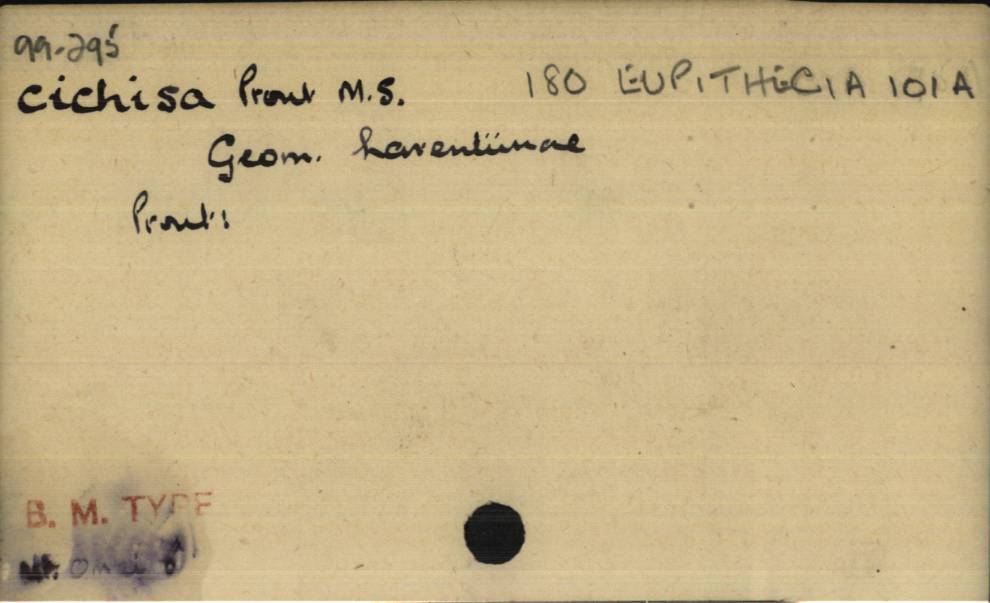 99-295
cichisa Prout M.S. 180 EUPITHECIA 101A
Geom. Larentiinae
Prout:
B. M. TYPE